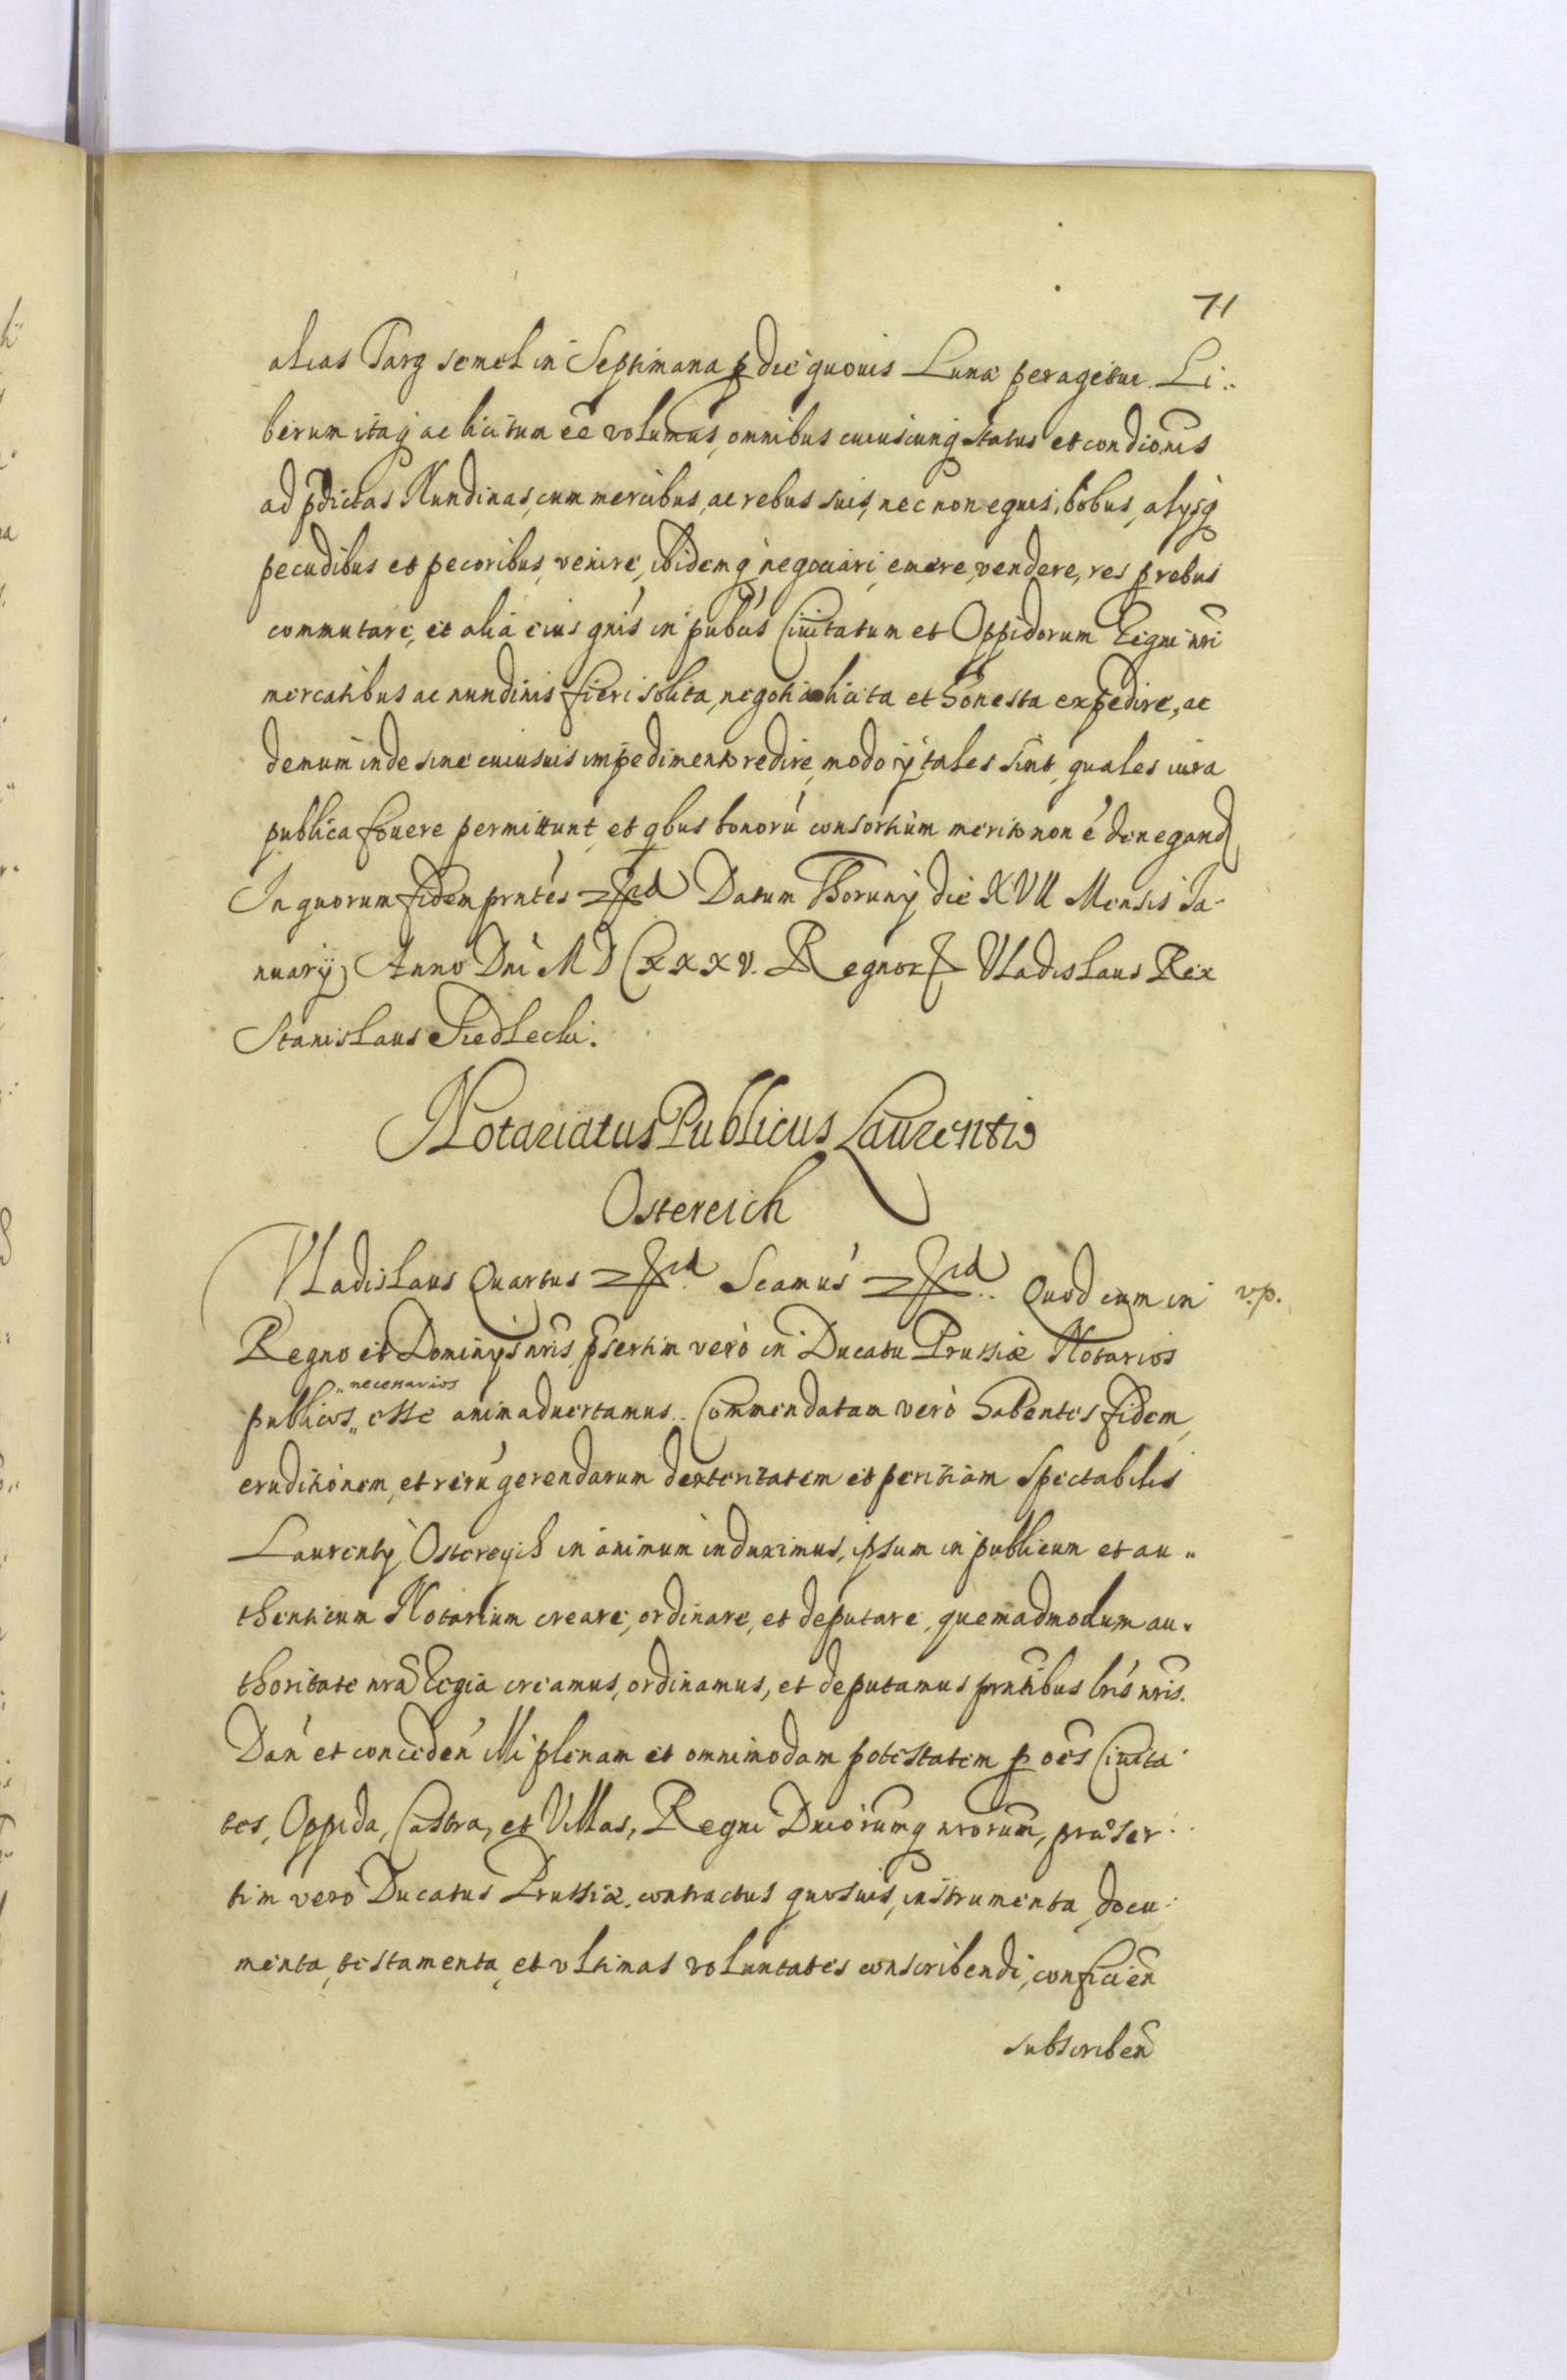 71
alias Targ semel in Septimana p die quouis Lunæ peragetur. Li..
berum itaq ac licitum eē volumus, omnibus cuiuscunq status et condiōnis
ad pdictas Nundinas, cum mercibus, ac rebus suis, nec non equis, bobus, alysq
pecudibus et pecoribus, venire, ibidemq negociari, emere, vendere, res p rebus
commutare, et alia eius gnis in pubcis Ciuitatum et Oppidorum Regni nri
mercatibus ac nundinis fieri solita, negotia licita et honesta expedire, ac
demum inde sine cuiusuis impedimento redire, modo ij tales sint, quales iura
publica fouere permittunt, et qbus bonorú consortium merito non é denegand
In quorum fidem prntes Datum Thoruny die XVII Mensis Ja-
nuarij Anno Dni M D C x x x v. Regnor Vladislaus Rex
Stanislaus Siedlecki.
Notariatus Publicus Laurentio
Ostereich
Vladislaus Quartus Scamus Quod cum in v.p.
Regno et Dominijs nris, psertim verò in Ducatu Prussiæ Notarios
„necessarios
publicos„ esse animaduertamus.. Commendatam verò habentes fidem,
eruditionem, et rerú gerendarum dexteritatem et peritiam Spectabilis
Laurenty Ostereyich in animum induximus, ipsum in publicum et au„
thenticum Notarium creare, ordinare, et deputare, quemadmodum au„
thoritate nra Regia creamus, ordinamus, et deputamus prntibus lris nris.
Dan et conceden illi plenam et omnimodam potestatem p oes Ciuita
tes, Oppida, Castra, et Villas, Regni Dniorumq nrorum, præser
tim vero Ducatus Prussiæ. contractus quosuis, instrumenta, docu
menta, testamenta, et vltimas voluntates conscribendi, conficien
subscriben